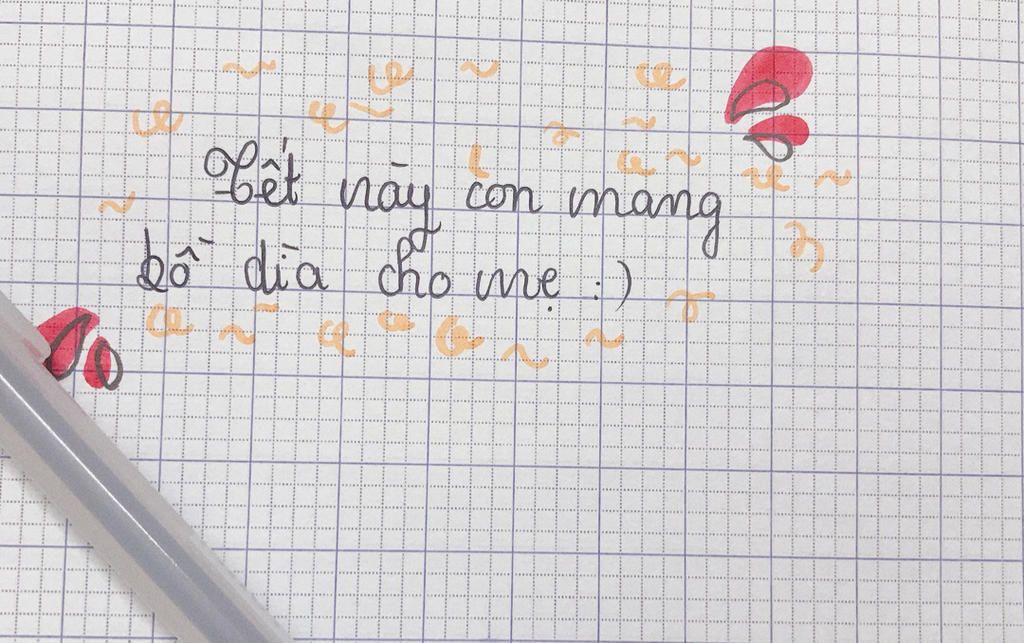 Tết này con mang
bồ dìa cho mẹ :)